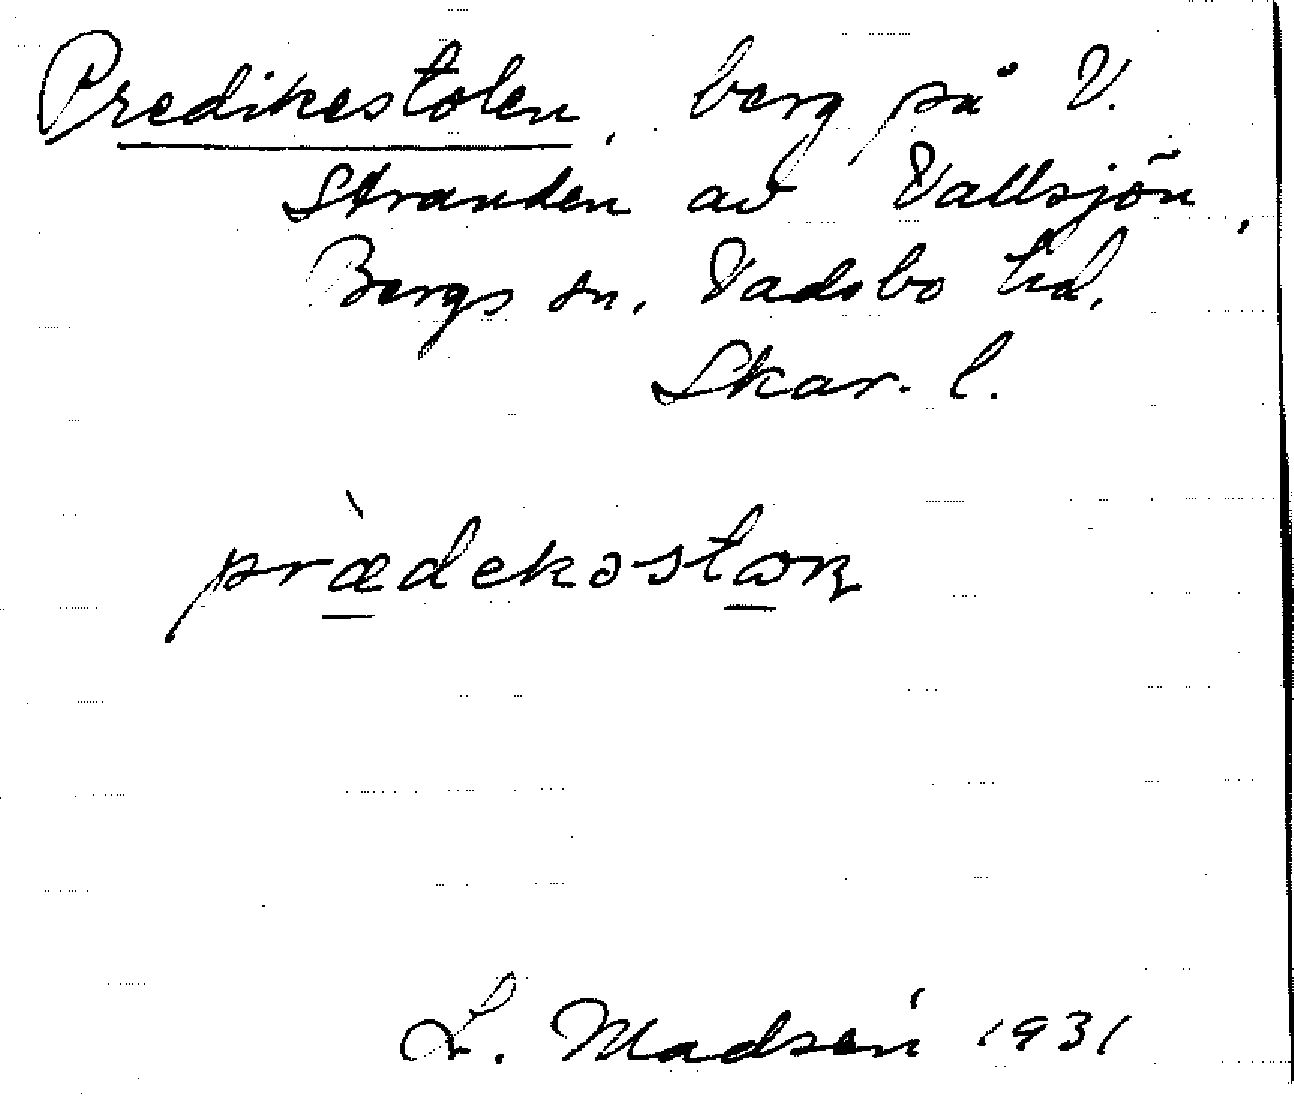 Predikestolen, berg på V.
Stranden av Vallsjön,
Bergs sn, Vadsbo hd,
Skar. l.
præ̀dekəstɷn
L. Madsén 1931